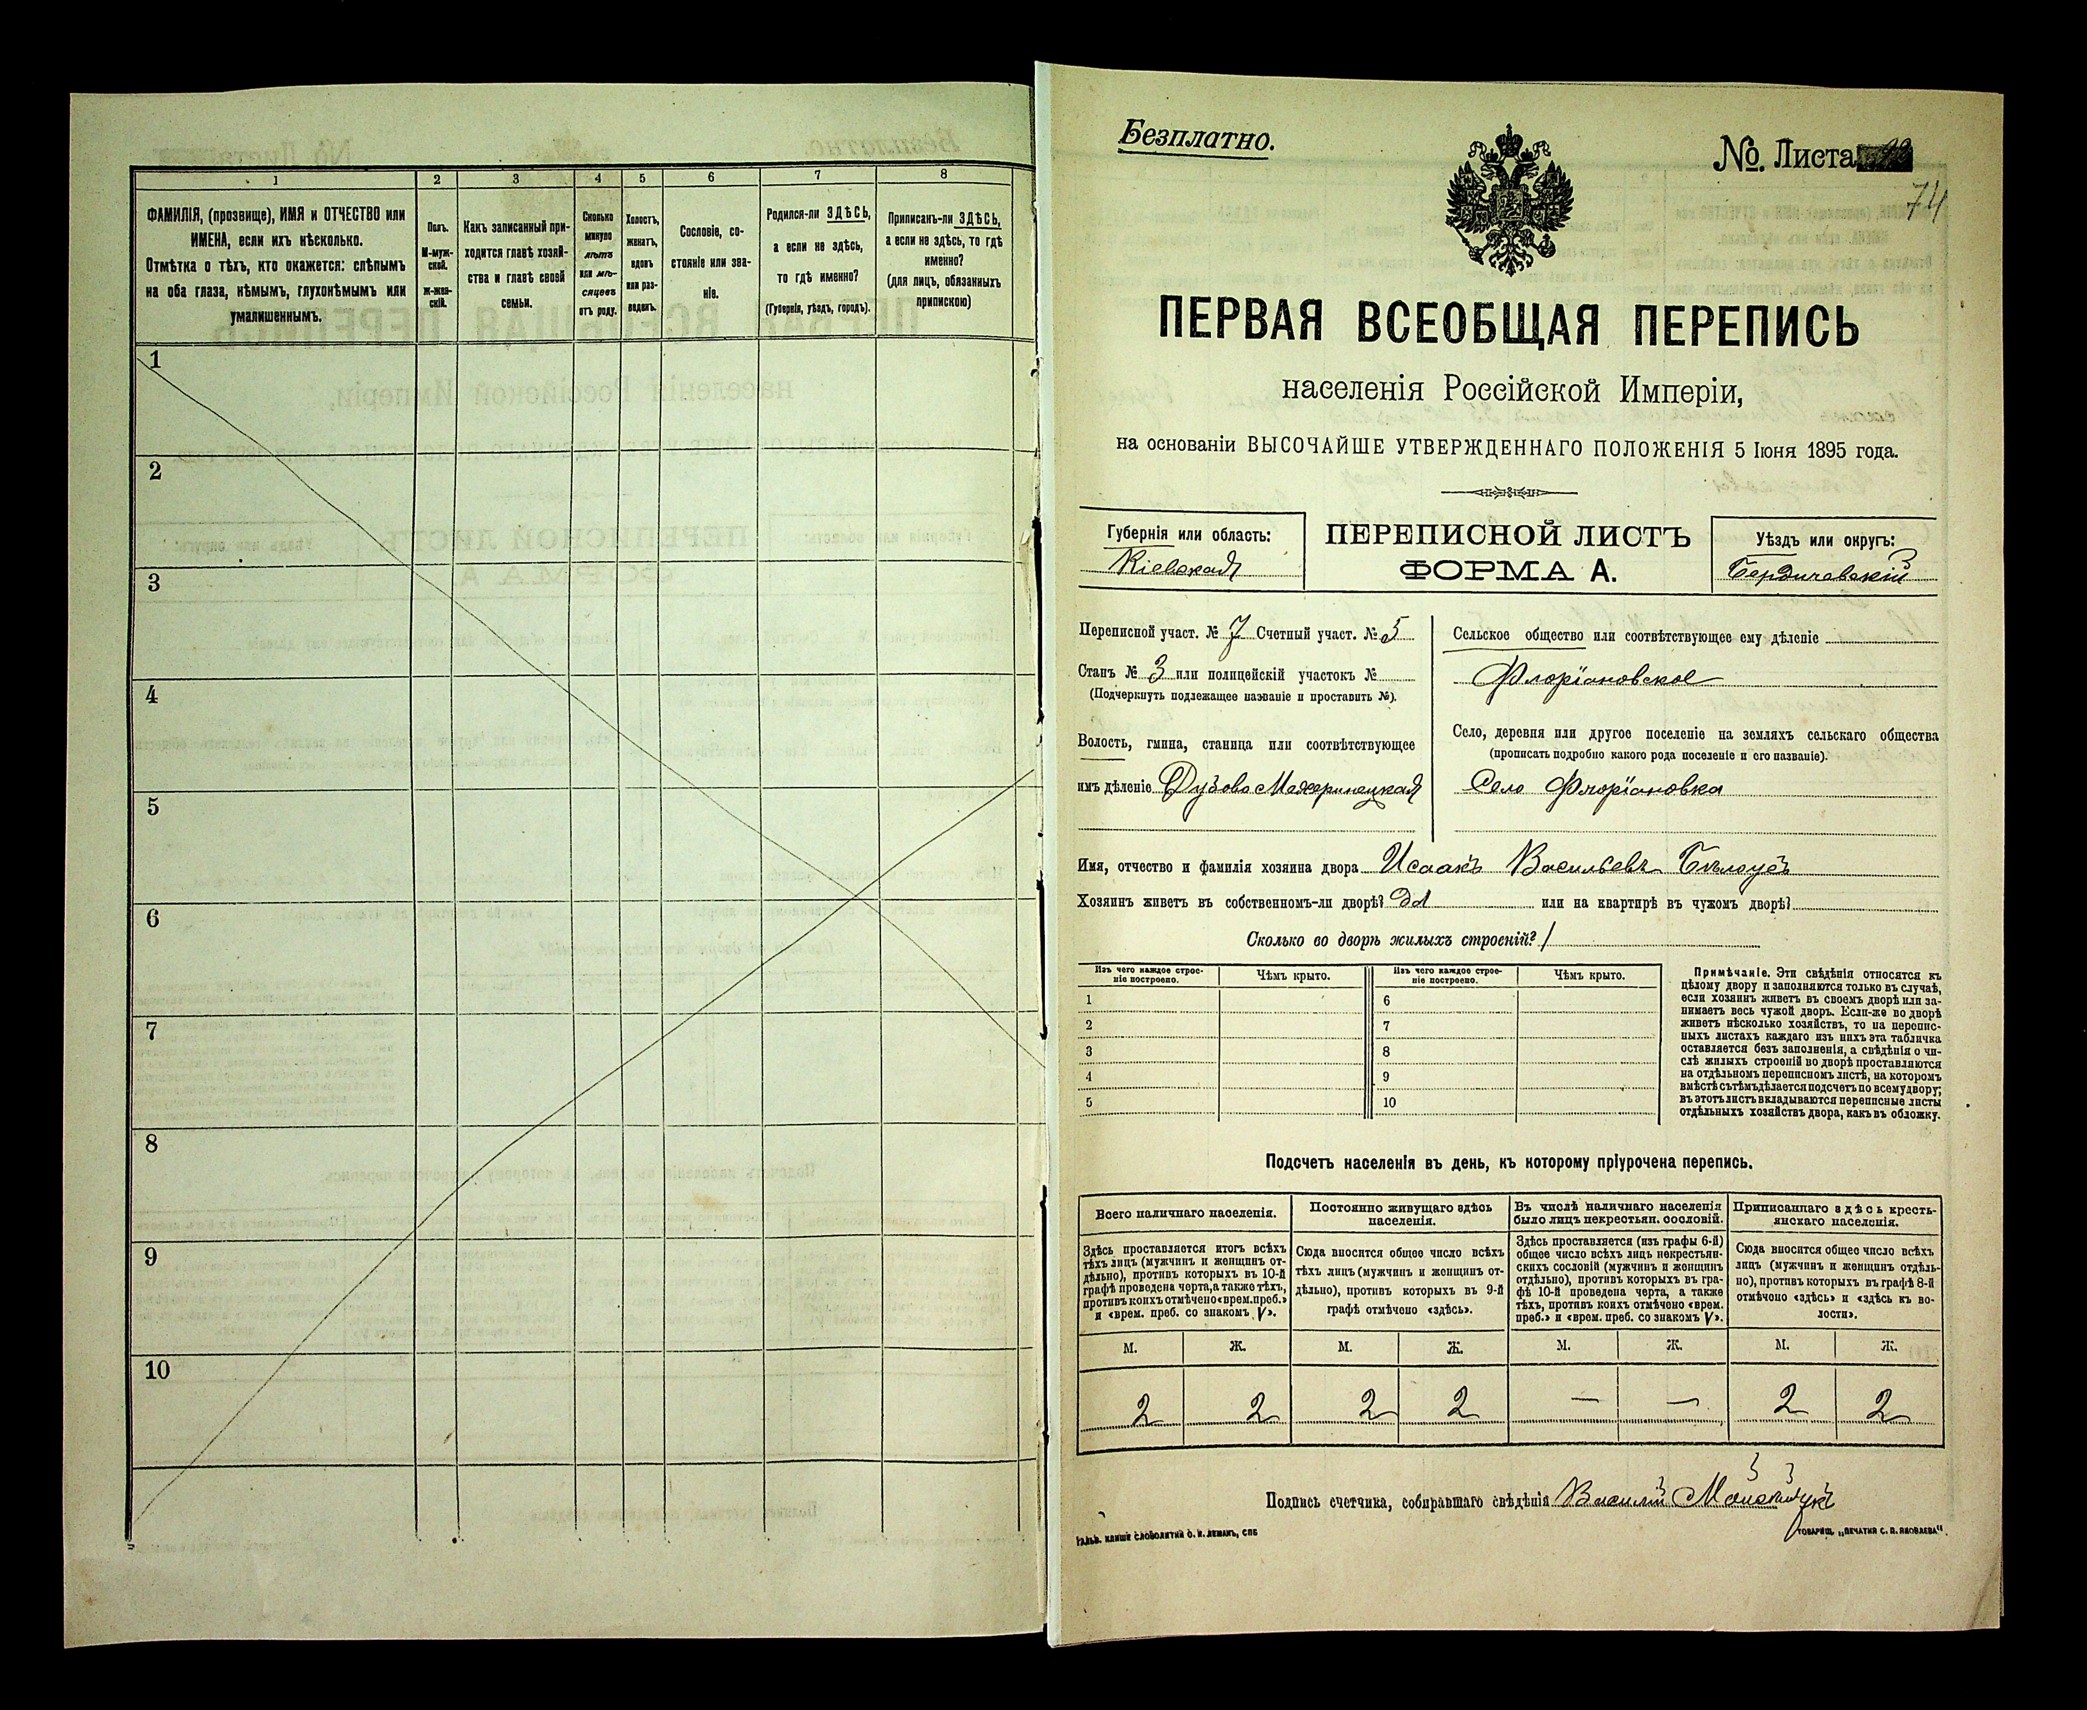 1 2 3 4 5 6 7 8
ФАМИЛІЯ, (прозвище), ИМЯ и ОТЧЕСТВО или
ИМЕНА, если ихъ нѣсколько.
Отмѣтка о тѣхъ, кто окажется: слѣпымъ
на оба глаза, нѣмымъ, глухонѣмымъ или
умалишеннымъ.
Полъ.
М-муж-
ской.
Ж-жен-
скій.
Какъ записанный при-
ходится главѣ хозяй-
ства и главѣ своей
семьи.
Сколько
минуло
лѣтъ
или мѣ-
сяцевъ
отъ роду.
Холостъ,
женатъ,
вдовъ
или раз-
веденъ.
Сословіе, со-
стояніе или зва-
ніе.
Родился-ли ЗДѢСЬ,
а если не здѣсь,
то гдѣ именно?
(Губернія, уѣздъ, городъ).
Приписанъ-ли ЗДѢСЬ,
а если не здѣсь, то гдѣ
именно?
(для лицъ, обязанныхъ
припискою)
1
2
3
4
5
6
7
8
9
10
Безплатно.
№. Листа
74
ПЕРВАЯ ВСЕОБЩАЯ ПЕРЕПИСЬ
населенія Россійской Имперіи,
на основаніи ВЫСОЧАЙШЕ УТВЕРЖДЕННАГО ПОЛОЖЕНІЯ 5 Іюня 1895 года.
Губернія или область:
Кіевская
ПЕРЕПИСНОЙ ЛИСТЪ
ФОРМА А.
Уѣздъ или округъ:
Бердичевскій
Переписной участ. № 7 Счетный участ. № 5
Станъ № 3 или полицейскій участокъ №
(Подчеркнуть подлежащее названіе и проставить №).
Волость, гмина, станица или соотвѣтствующее
имъ дѣленіе Дубово Махаринецкая
Сельское общество или соотвѣтствующее ему дѣленіе
Флоріановское
Село, деревня или другое поселеніе на земляхъ сельскаго общества
(прописать подробно какого рода поселеніе и его названіе).
Село Флоріановка
Имя, отчество и фамилія хозяина двора Исаакъ Васильевъ Бѣлоусъ
Хозяинъ живетъ въ собственномъ-ли дворѣ? да или на квартирѣ въ чужомъ дворѣ?
Сколько во дворѣ жилыхъ строеній? 1
Изъ чего каждое строе-
ніе построено.
Чѣмъ крыто.
Изъ чего каждое строе-
ніе построено.
Чѣмъ крыто.
1 6
2 7
3 8
4 9
5 10
Примѣчаніе. Эти свѣдѣнія относятся къ
цѣлому двору и заполняются только въ случаѣ,
если хозяинъ живетъ въ своемъ дворѣ или за-
нимаетъ весь чужой дворъ. Если-же во дворѣ
живетъ нѣсколько хозяйствъ, то на перепис-
ныхъ листахъ каждаго изъ нихъ эта табличка
оставляется безъ заполненія, а свѣдѣнія о чи-
слѣ жилыхъ строеній во дворѣ проставляются
на отдѣльномъ переписномъ листѣ, на которомъ
вмѣстѣ съ тѣмъ дѣлается подсчетъ по всему двору;
въ этотъ листъ вкладываются переписные листы
отдѣльныхъ хозяйствъ двора, какъ въ обложку.
Подсчетъ населенія въ день, къ которому пріурочена перепись.
Всего наличнаго населенія.
Постоянно живущаго здѣсь
населенія.
Въ числѣ наличнаго населенія
было лицъ некрестьян. сословій.
Приписаннаго здѣсь кресть-
янскаго населенія.
Здѣсь проставляется итогъ всѣхъ
тѣхъ лицъ (мужчинъ и женщинъ от-
дѣльно), противъ которыхъ въ 10-й
графѣ проведена черта, а также тѣхъ,
противъ коихъ отмѣчено «врем. преб.»
и «врем. преб. со знакомъ V».
Сюда вносится общее число всѣхъ
тѣхъ лицъ (мужчинъ и женщинъ от-
дѣльно), противъ которыхъ въ 9-й
графѣ отмѣчено «здѣсь».
Здѣсь проставляется (изъ графы 6-й)
общее число всѣхъ лицъ некрестьян-
скихъ сословій (мужчинъ и женщинъ
отдѣльно), противъ которыхъ въ гра-
фѣ 10-й проведена черта, а также
тѣхъ, противъ коихъ отмѣчено «врем.
преб.» и «врем. преб. со знакомъ V».
Сюда вносится общее число всѣхъ
лицъ (мужчинъ и женщинъ отдѣль-
но), противъ которыхъ въ графѣ 8-й
отмѣчено «здѣсь» и «здѣсь къ во-
лости».
М. Ж. М. Ж. М. Ж. М. Ж.
2 2 2 2 — — 2 2
Подпись счетчика, собиравшаго свѣдѣнія Василій
ГАЛЬВ. КЛИШЕ СЛОВОЛИТНИ О. И. ЛЕМАНЪ, СПБ
ТОВАРИЩ. „ПЕЧАТНЯ С. П. ЯКОВЛЕВА".